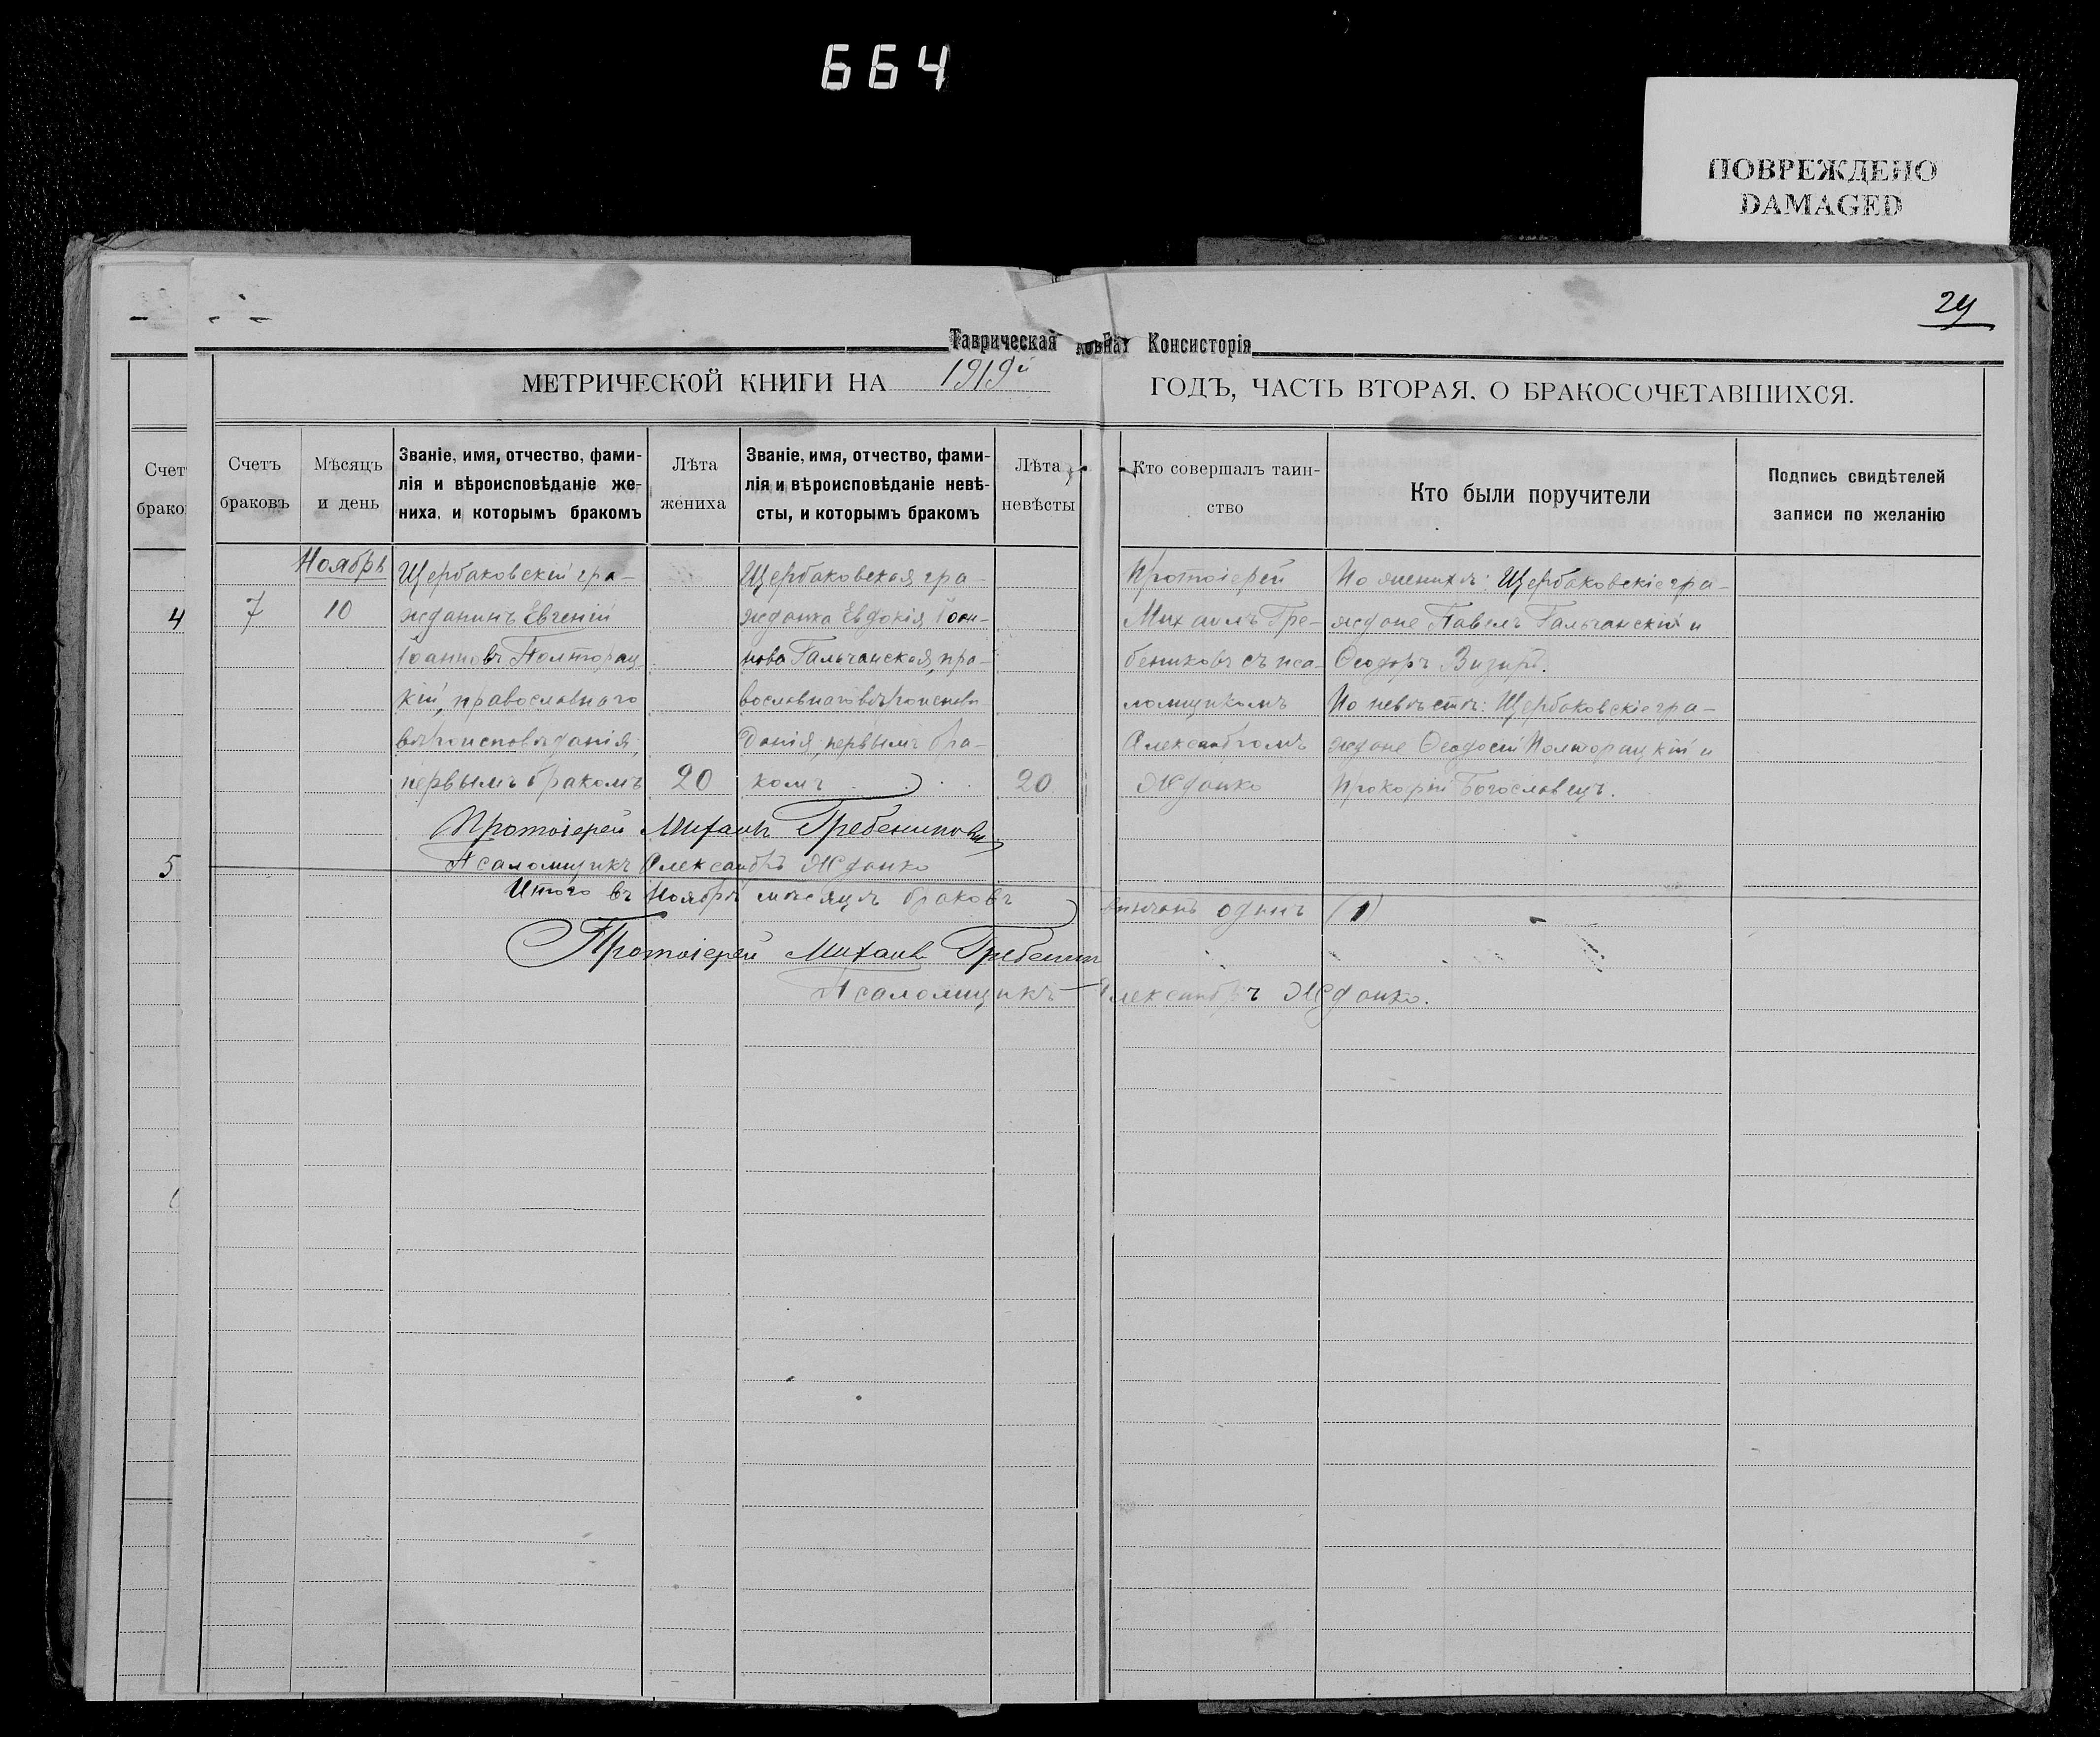 664
ПОВРЕЖДЕНО
DAMAGED
29
Таврическая Консисторія
МЕТРИЧЕСКОЙ КНИГИ НА 1919й ГОДЪ, ЧАСТЬ ВТОРАЯ, О БРАКОСОЧЕТАВШИХСЯ.
Счет
брако
4
5
Счетъ
браковъ
Мѣсяцъ
и день
Званіе, имя, отчество, фами-
лія и вѣроисповѣданіе же-
ниха, и которымъ бракомъ
Лѣта
жениха
Званіе, имя, отчество, фами-
лія и вѣроисповѣданіе невѣ-
сты, и которымъ бракомъ
Лѣта
невѣсты
Кто совершалъ таин-
ство
Кто были поручители
Подпись свидѣтелей
записи по желанію
7
Ноябрь
10
Щербаковскій гра-
жданинъ Евгеній
Іоанновъ Полторац
кій, православнаго
вѣроисповѣданія,
первымъ бракомъ
20
Щербаковская гра-
жданка Евдокія Іоан-
нова Гальчанская, пра-
вославнаго вѣроисповѣ
данія, первымъ бра-
комъ
20
Протоіерей
Михаилъ Гре-
бениковъ съ пса-
ломщикомъ
Александромъ
Жданко
По женихѣ: Щербаковскіе гра-
ждане Павелъ Гальчанскій и
Ѳеодоръ Визиръ.
По невѣстѣ: Щербаковскіе гра-
ждане Ѳеодосій Полторацкій и
Прокопій Богославецъ.
Протоіерей Михаилъ Гребениковъ
Псаломщикъ Александръ Жданко
Итого въ Ноябрѣ мѣсяцѣ браковъ вѣнчанъ одинъ (1)
Протоіерей Михаилъ Гребеник
Псаломщикъ Александръ Жданко.